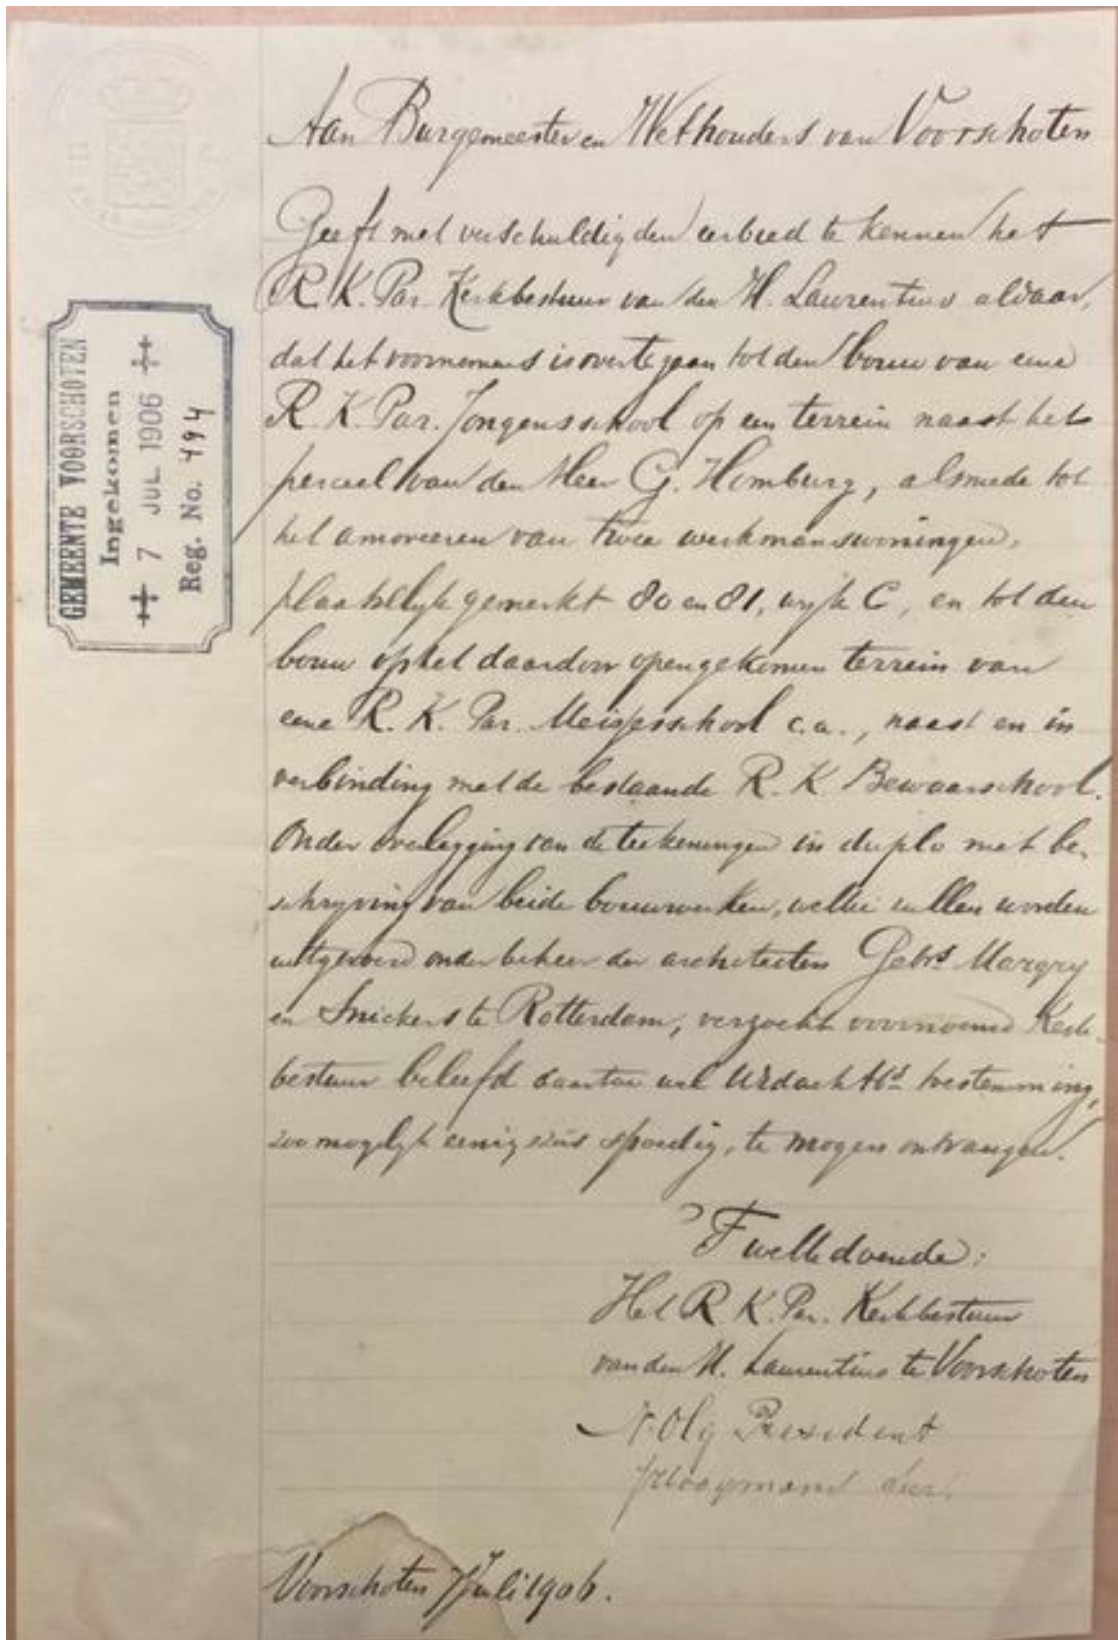 Aan Burgemeester en Wethouders van Voorschoten
Geeft met verschuldigden eerbied te kennen het
R. K. Par. Kerkbestuur van den H. Laurentius aldaar,
dat het voornemens is over te gaan tot den bouw van eene
R. K. Par. Jongensschool op een terrein naast het
perceel van den Heer G. Homburg, alsmede tot
het amoveeren van twee werkmanswoningen,
plaatselijk gemerkt 80 en 81, wijk C, en tot den
bouw op het daardoor opengekomen terrein van
eene R. K. Par. Meisjesschool c.a., naast en in
verbinding met de bestaande R. K. Bewaarschool.
Onder overlegging van de teekeningen in duplo met be-
schrijving van beide bouwwerken, welke zullen worden
uitgevoerd onder beheer der architecten Gebrs Margry
en Snickers te Rotterdam, verzoekt voornoemd Kerk-
bestuur beleefd daartoe wel UEdachtb toestemming,
zoo mogelijk eenigszins spoedig, te mogen ontvangen.
'T welk doende:
Het R. K. Par. Kerkbestuur
van den H. Laurentius te Voorschoten
President
Voorschoten 7 Juli 1906.
GEMEENTE VOORSCHOTEN
Ingekomen
7 JUL 1906
Reg. No. 494